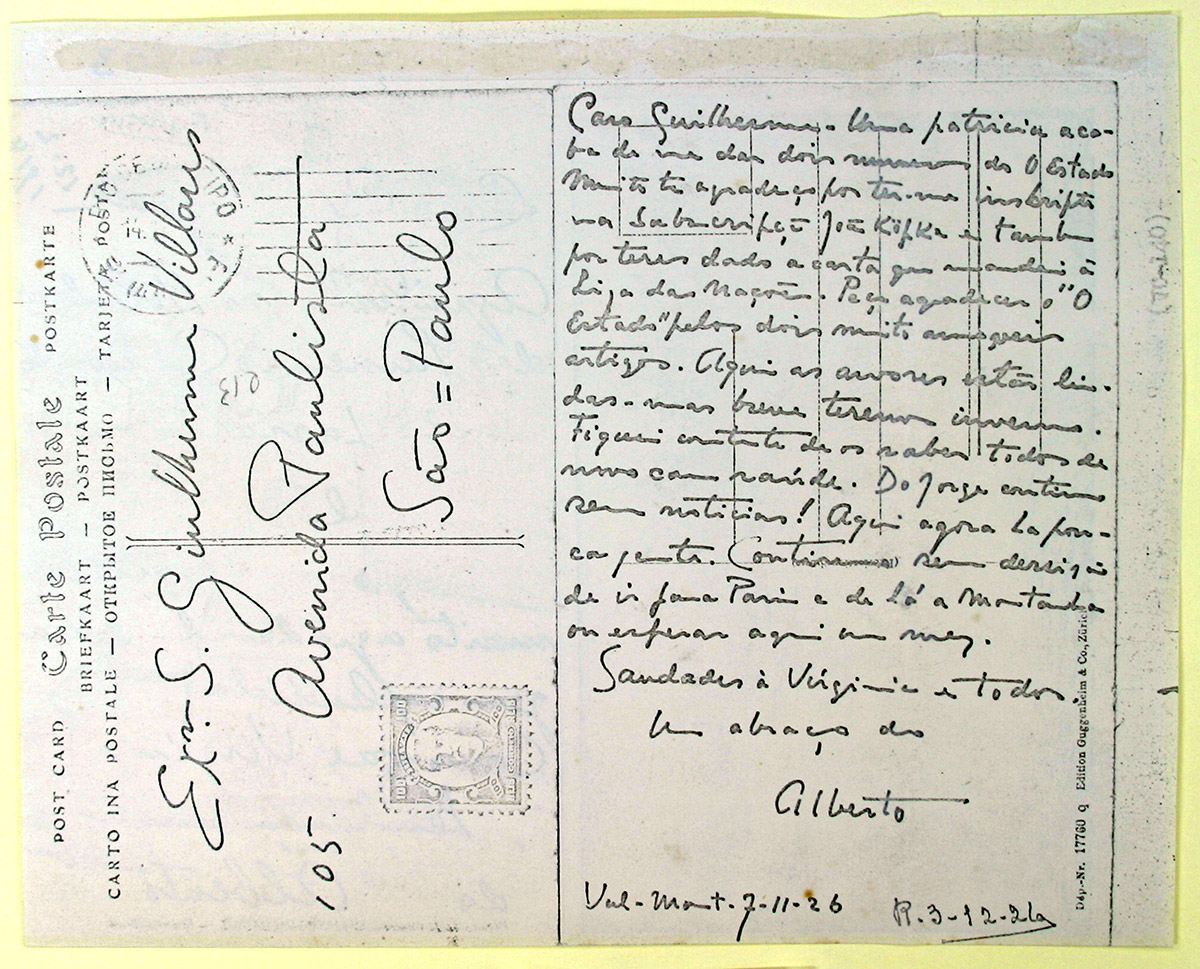 POST CARD Carte Postale POSTKARTE
BRIEFKAART – POSTKAART
CARTO INA POSTALE – ОТКРЫТОЕ ПИСЬМО – TARJETA POSTAL
Exmo. S. Guilherme Villares
105. Avenida Paulista
São = Paulo
Caro Guilherme. Uma patricia aca-
ba de me dar dois numeros do O Estado
Muito te agradeço por ter-me inscripto
na Subscripção João Köpke e tambem
por teres dado a carta que mandei á
Liga das Nações. Peço agradeceres o "O
Estado" pelos dois muito amaveis
artigos. Aqui as arvores estão lin-
das-mas breve teremos inverno.
Fiquei contente de os saber todos de
novo com saúde. Do Jorge continuo
sem noticias! Aqui agora ha pou-
ca gente. Continuo sem
de ir para Paris e de lá a Montanha
ou esperar aqui um mez.
Saudades à Virginia e todos.
Um abraço do
Alberto
Val-Mont. 7-11-26
R. 3-12-26
Dép.-Nr. 17760 q Edition Guggenheim & Co., Zürich